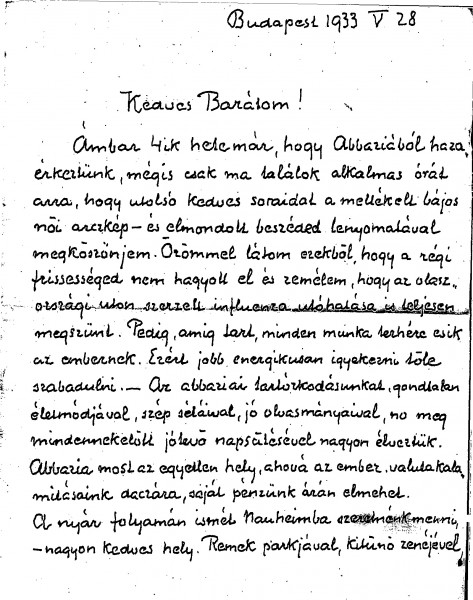 Budapest 1933 V 28
Kedves Barátom!
Ámbár 4ik hete már, hogy Abbaziából haza
érkeztünk, mégis csak ma találok alkalmas órát
arra, hogy utolsó kedves soraidat a mellékelt bájos
női arczkép – és elmondott beszéded lenyomatával
megköszönjem. Örömmel látom ezekből, hogy a régi
frissességed nem hagyott el és remélem, hogy az olasz-
országi uton szerzett influenza utóhatása is teljesen
megszünt. Pedig, amig tart, minden munka terhére esik
az embernek. Ezért jobb energikusan igyekezni tőle
szabadulni. – Az abbaziai tartózkodásunkat, gondtalan
életmódjával, szép sétáival, jó olvasmányaival, no meg
mindennekelőtt jótevő napsütésével nagyon élveztük.
Abbazia most az egyetlen hely, ahová az ember, valuta kala-
mitásaink daczára, saját pénzünk árán elmehet.
A nyár folyamán ismét Nauheimba szeretnénk menni,
– nagyon kedves hely. Remek parkjával, kitünő zenéjével,